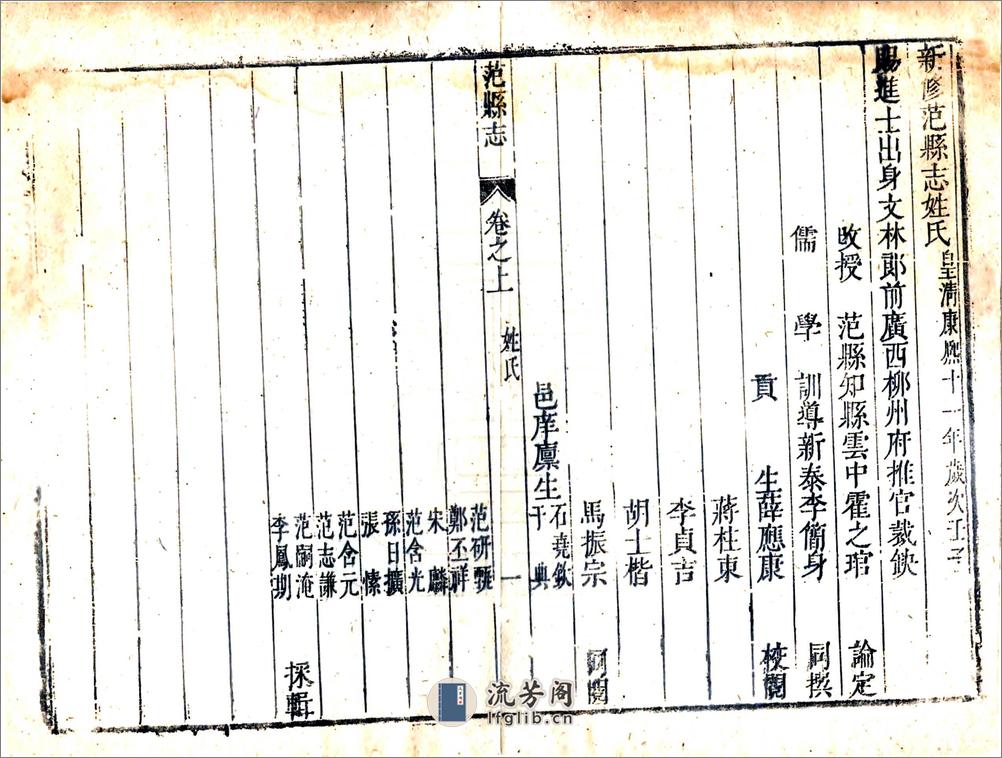 新修范縣志姓氏 皇清康熙十一年歲次壬子
賜進士出身文林郎前廣西柳州府推官裁缺
改授 范縣知縣雲中霍之琯 論定
儒 學 訓導新泰李簡身 同撰
貢 生薛應康 校閱
蔣柱東
李貞吉
胡士楷
馬振宗 同閱
邑庠廩生石堯欽
于 典
范縣志 卷之上 姓氏 一
范研
鄭丕祥
宋 麟
范含光
孫日擴
張 愫
范含元
范志謙
范嗣淹
李鳳期 採輯
流芳阁
lfglib.cn